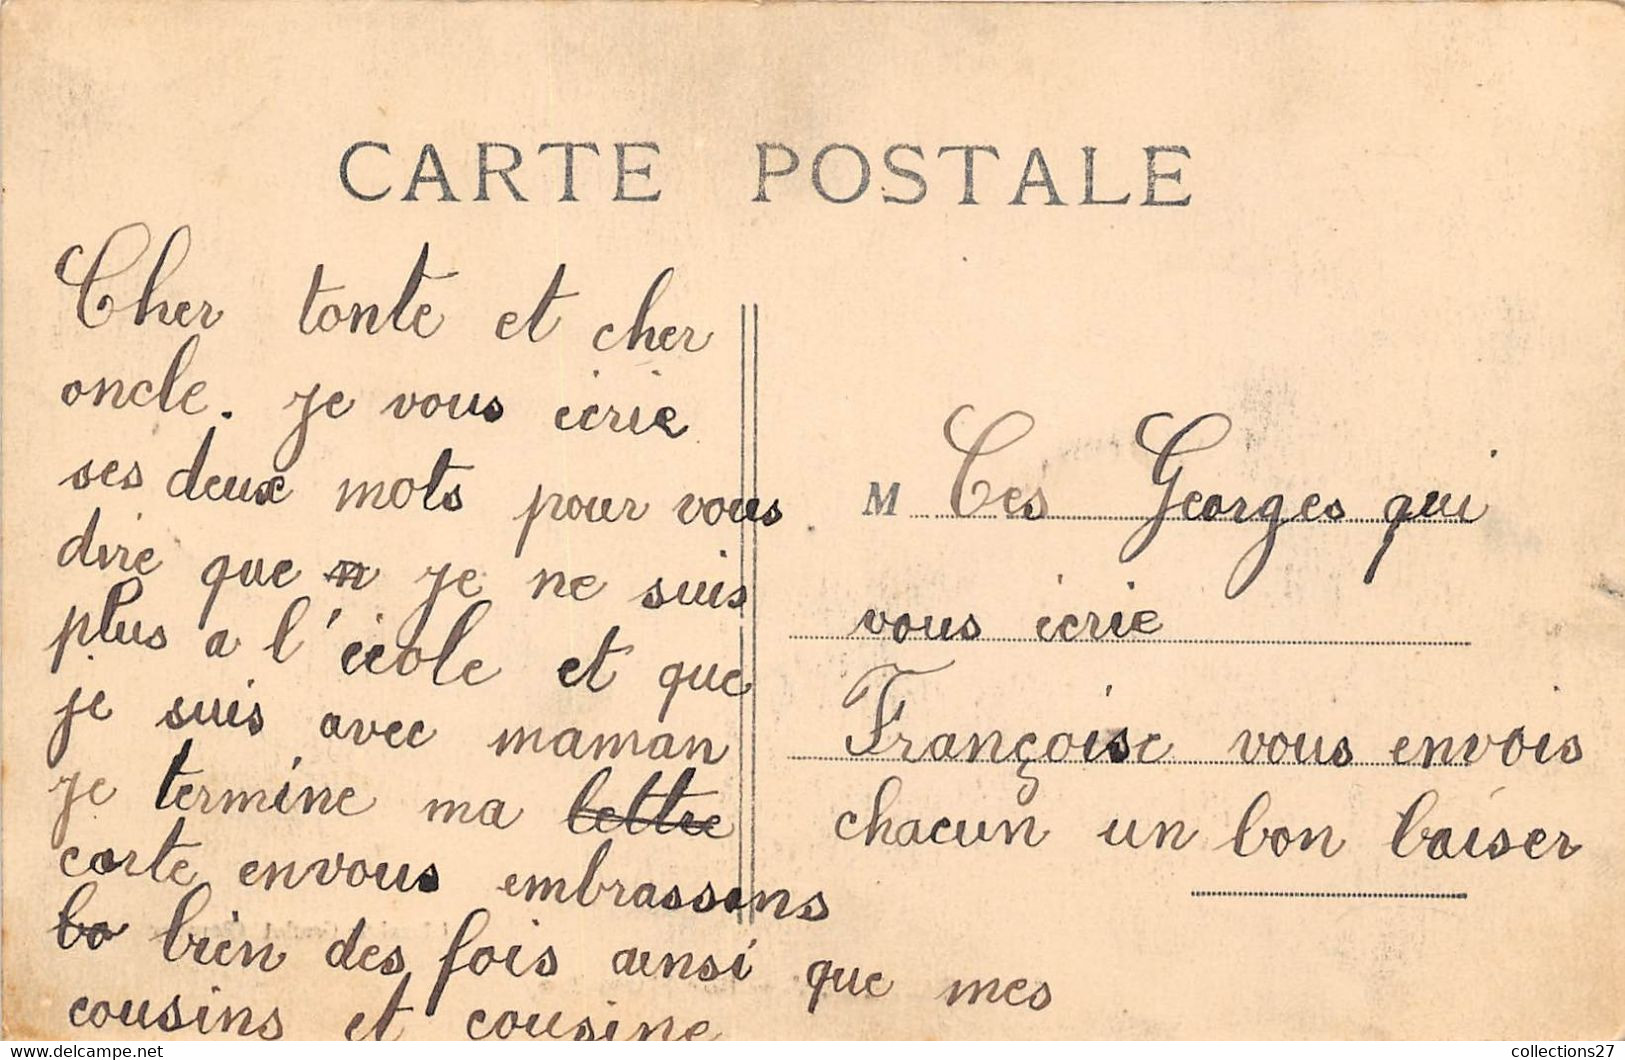 CARTE POSTALE
Cher tonte et cher
oncle. je vous icrie
ses deux mots pour vous
dire que n je ne suis
plus a l'icole et que
je suis avec maman
je termine ma lettre
corte envous embrassons
bo bien des fois ainsi que mes
cousins et cousine
M Ces Georges qui
vous icrie
Françoise vous envois
chacun un bon baiser
collections27